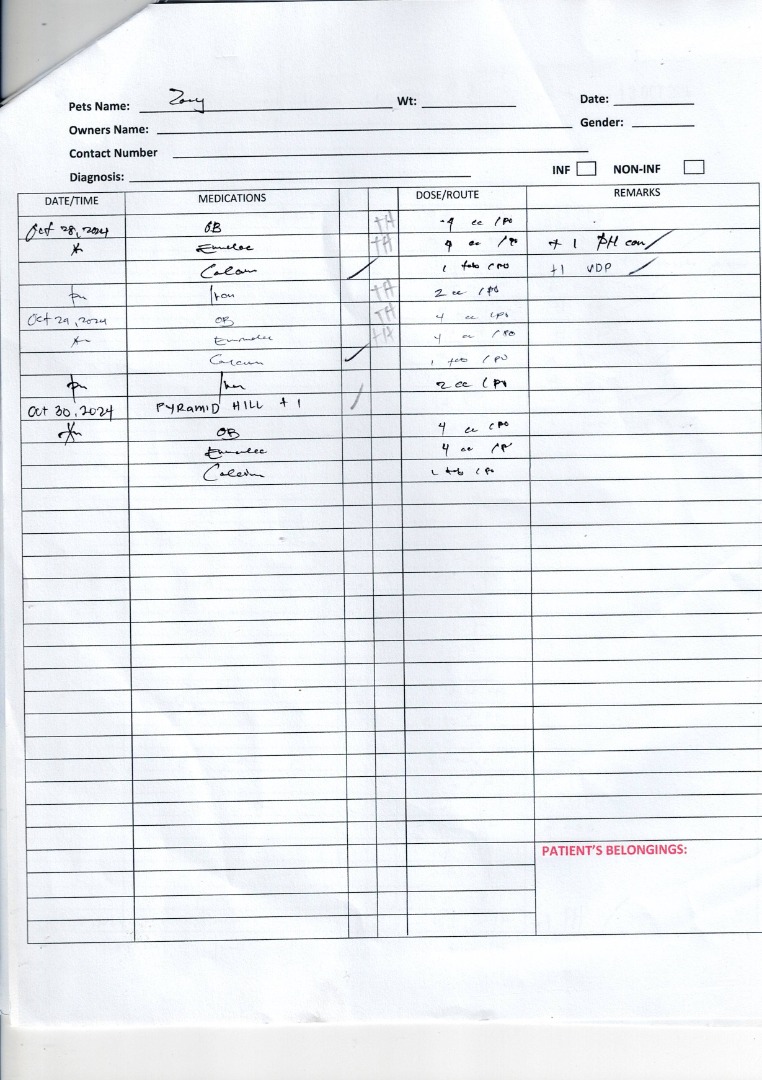 Pets Name: Zoey Wt: Date:
Owners Name: Gender:
Contact Number
Diagnosis: INF NON-INF
DATE/TIME MEDICATIONS DOSE/ROUTE REMARKS
Oct 28, 2024 OB TH 4 cc / PO
TH 4 cc / PO + 1 PH can
1 tab / PO +1 VDP
pm Iron TH 2 cc / PO
Oct 29, 2024 OB TH 4 cc / PO
TH 4 cc / PO
1 tab / PO
pm Iron 2 cc / PO
Oct 30, 2024 PYRAMID HILL + 1
OB 4 cc / PO
4 cc / PO
Calcium 1 tab / PO
PATIENT'S BELONGINGS: